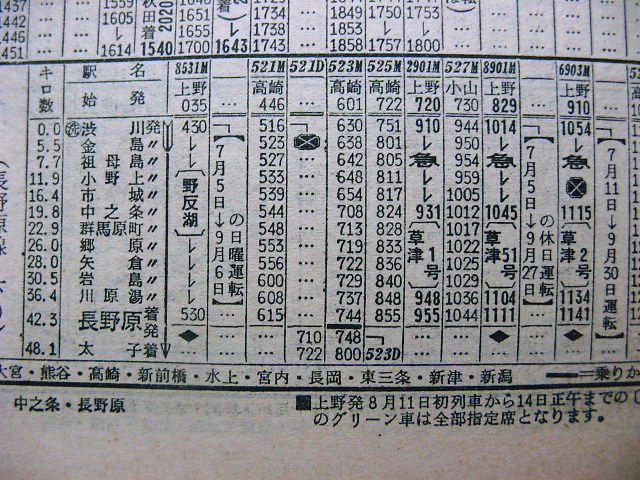 1437 1559 1651 1849 1750 1752
1442 1605 1655 1744 1757 1753
1614 1540 1700 1643 1743 1858 1757 1800
キロ数 駅名 8531M 521M 521D 523M 525M 2901M 527M 8901M 6903M
始発 上野 035 高崎 446 … 高崎 601 高崎 722 上野 720 小山 上野 829 上野 910
0.0 渋川発 430 516 … 630 751 910 944 1014 1054
5.5 金島〃 523 638 801 950
7.7 祖母島〃 527 642 805 急 955 急 急
11.9 小野上〃 533 648 811 959
16.4 市城〃 539 654 817 1005
19.8 中之条〃 544 708 824 931 1012 1045 1115
22.9 群馬原町〃 548 712 828 1017
26.0 郷原〃 553 717 833 1022
28.0 矢倉〃 556 722 836 1025
30.5 岩島〃 600 729 840 1029
36.4 川原湯〃 608 737 848 948 1036 1104 1134
42.3 長野原着 530 615 744 855 955 1044 1111 1141
発 … 710 748
48.1 太子着 … 722 800 523D
〔野反湖〕
7月5日→9月6日 の日曜運転
〔草津1号〕
〔草津51号〕
7月5日→9月27日 の休日運転
〔草津2号〕
7月11日→9月30日 運転
大宮・熊谷・高崎・新前橋・水上・宮内・長岡・東三条・新津・新潟 ━━=乗りか
中之条・長野原
■上野発8月11日初列車から14日正午までの
のグリーン車は全部指定席となります。